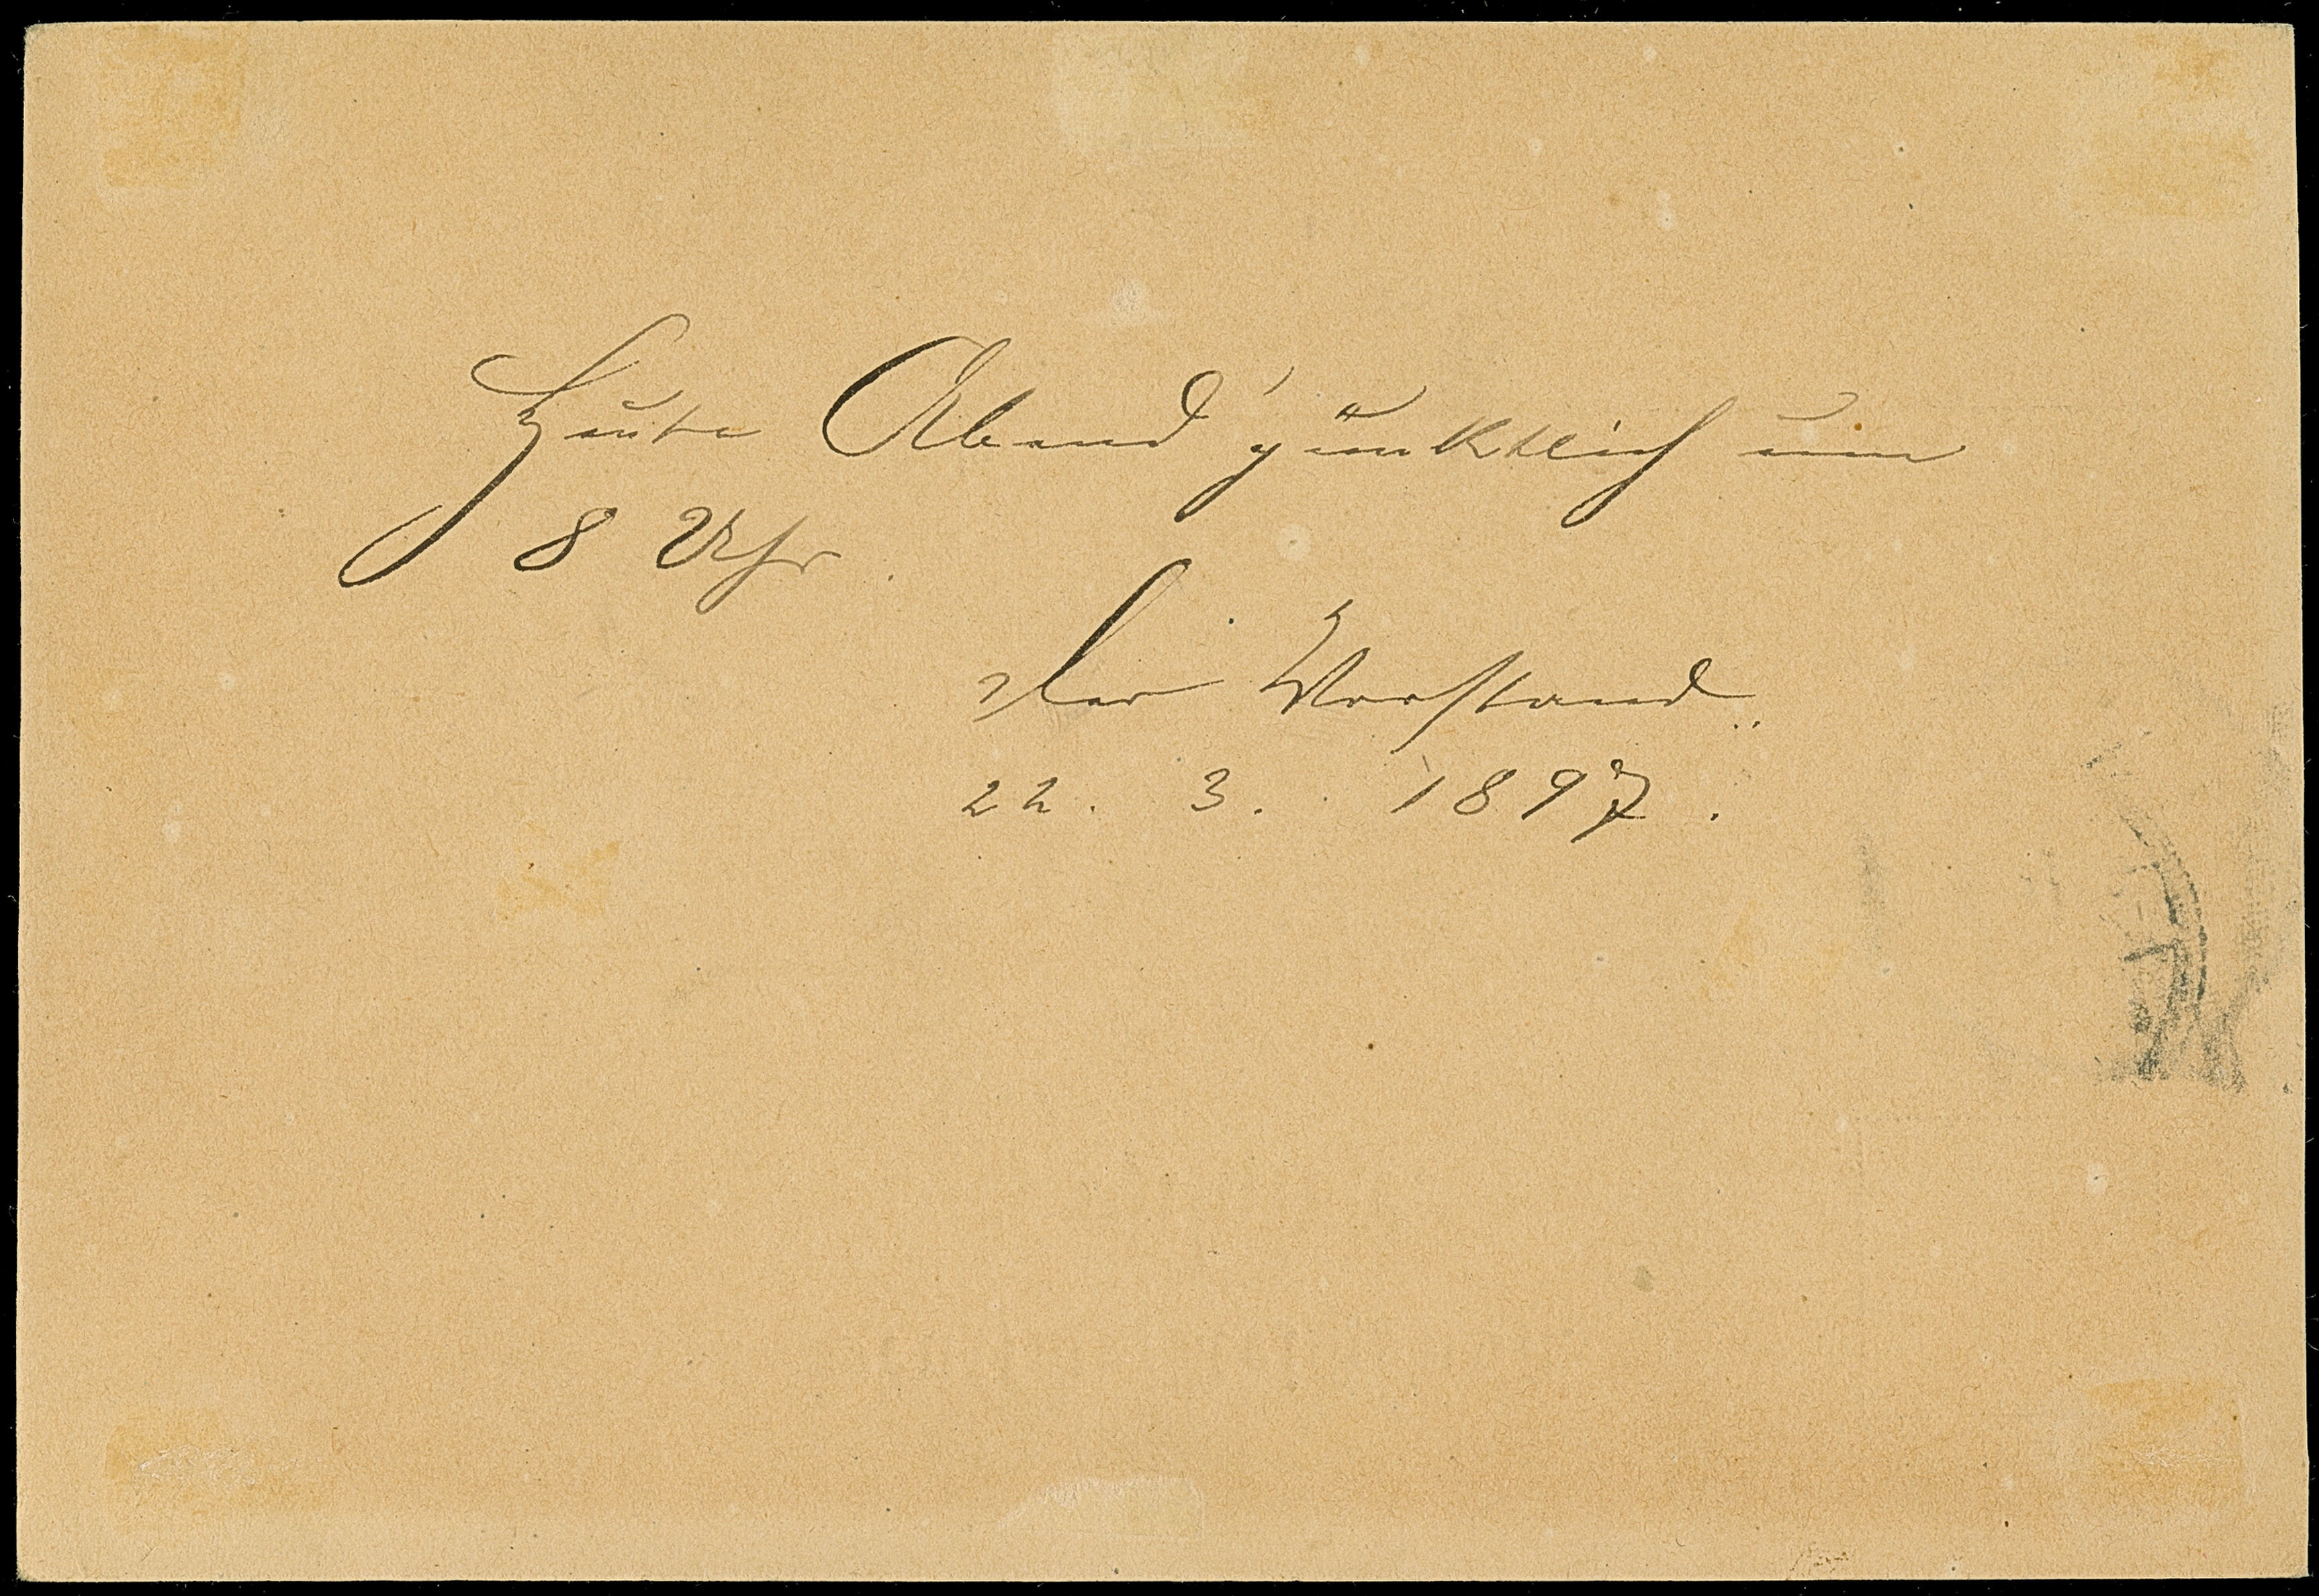 Heute Abend pünktlich um
8 Uhr.
Der Vorstand.
22. 3. 1897.